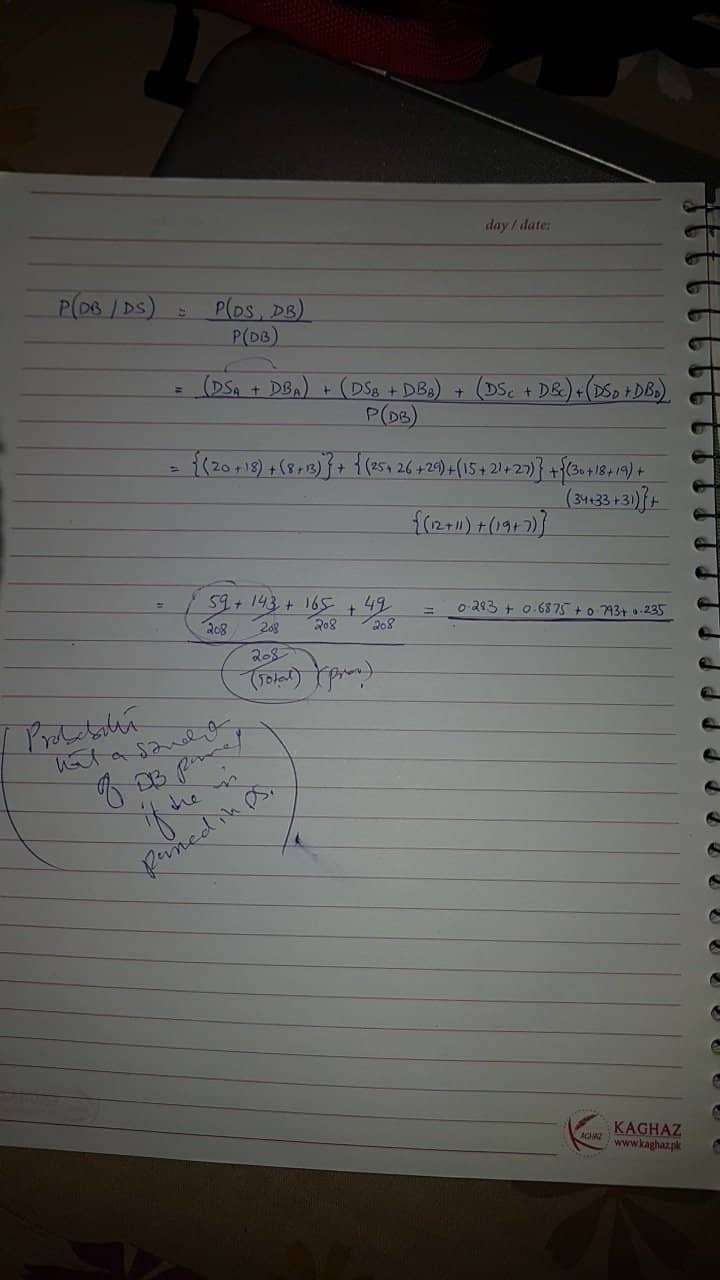 day / date:
P(DB / DS) = P(DS, DB)
P(DB)
= (DSA + DBA) + (DSB + DBB) + (DSC + DBC) + (DSD + DBD)
P(DB)
= {(20+18) + (8+13)} + {(25+26+29)+(15+21+27)} + {(30+18+19) +
(34+33+31)} +
{(12+11) + (19+7)}
= 59/208 + 143/208 + 165/208 + 49/208 = 0.283 + 0.6875 + 0.793 + 0.235
208
(Total)
a
of DB
if he is
in DS.
KAGHAZ
KAGHAZ
www.kaghaz.pk